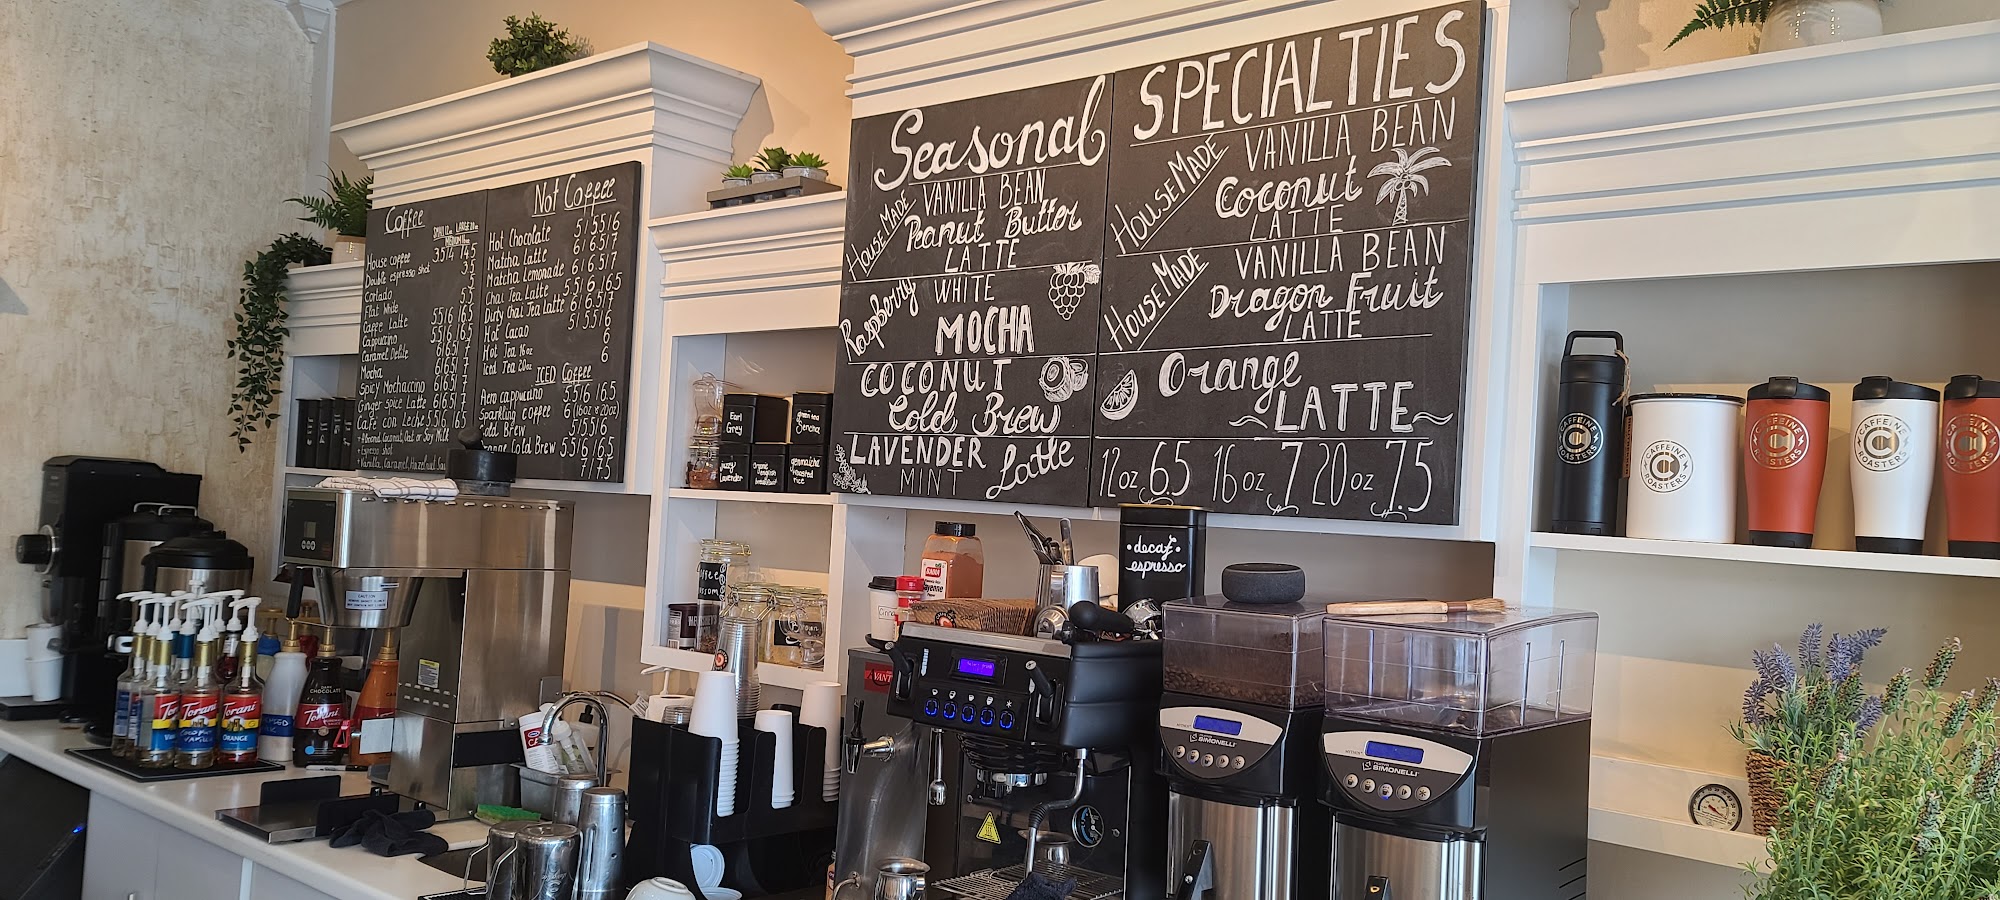 Coffee
SMALL 12oz LARGE 20oz
MEDIUM 16oz
House coffee 3.5/4/4.5
Double espresso shot 3.5
Cortado
Flat White 5.5
Caffe Latte 5.5/6/6.5
Cappuccino 5.5/6/6.5
Caramel Delite 6/6.5/7
Mocha 6/6.5/7
Spicy Mochaccino 6/6.5/7
Ginger Spice Latte 6/6.5/7
Cafe con Leche 5.5/6/6.5
+ Almond, Coconut, Oat or Soy Milk
+ Espresso shot
+ Vanilla, Caramel, Hazelnut
Not Coffee
Hot Chocolate 5/5.5/6
Matcha Latte 6/6.5/7
Matcha Lemonade 6/6.5/7
Chai Tea Latte 5.5/6/6.5
Dirty Chai Tea Latte 6/6.5/7
Hot Cacao 5/5.5/6
Hot Tea 16oz 6
Iced Tea 20oz 6
ICED Coffee
Aero cappuccino 5.5/6/6.5
Sparkling coffee 6 (16oz & 20oz)
Cold Brew 5/5.5/6
Cold Brew 5.5/6/6.5
7/7.5
Seasonal
HOUSE MADE VANILLA BEAN
Peanut Butter
LATTE
Raspberry WHITE
MOCHA
COCONUT
Cold Brew
LAVENDER
MINT Latte
SPECIALTIES
HOUSE MADE VANILLA BEAN
Coconut
LATTE
HOUSE MADE VANILLA BEAN
Dragon Fruit
LATTE
Orange
~LATTE~
12oz 6.5 16oz 7 20oz 7.5
Earl Grey
green tea Sencha
Lavender
organic english breakfast
genmaicha roasted rice
•decaf•
espresso
CAFFEINE
ROASTERS
CAFFEINE
ROASTERS
CAFFEINE
ROASTERS
CAFFEINE
ROASTERS
CAFFEINE
ROASTERS
Torani
Torani
ORANGE
DARK
CHOCOLATE
Torani
CAUTION
SIMONELLI
SIMONELLI